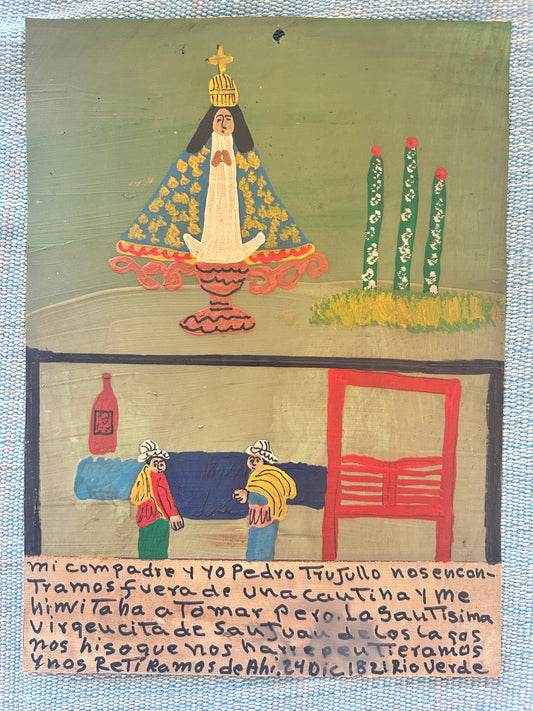 mi compadre y yo Pedro Trujullo nos encon-
Tramos fuera de una cantina y me
himvitaba a Tomar pero la Santisima
Virgencita de San Juan de Los Lagos
nos hiso que nos harrepentieramos
y nos Reti Ramos de Ahi. 24 Dic. 1821 Rio Verde